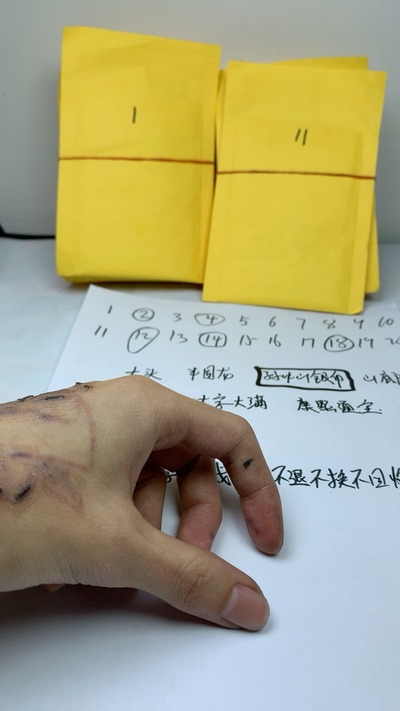 1
11
1 2 3 4 5 6 7 8 9 10
11 12 13 14 15 16 17 18 19 20
大头 中国龙 孙中山银币
大字大满 康熙
不退不换不回收